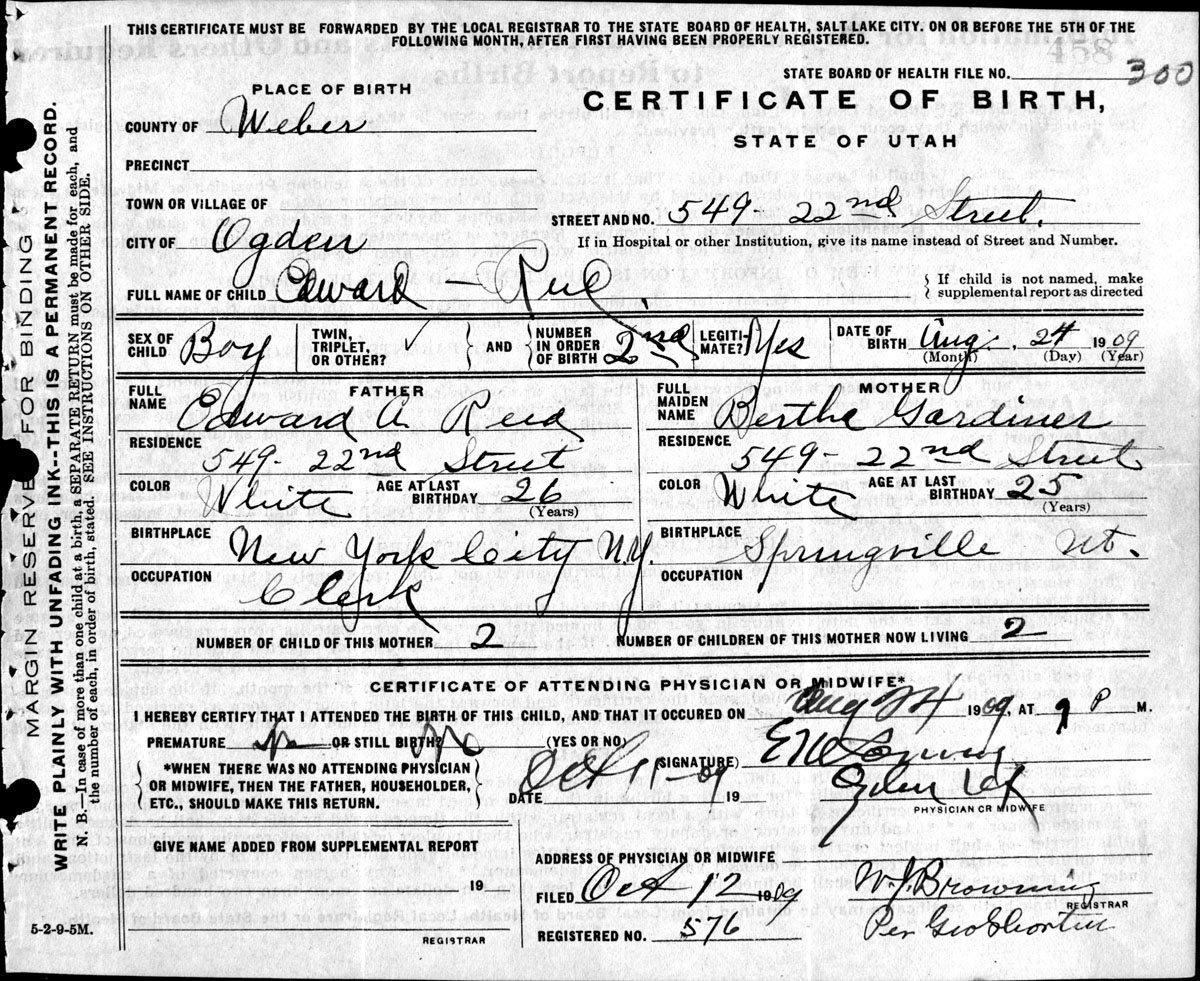 THIS CERTIFICATE MUST BE FORWARDED BY THE LOCAL REGISTRAR TO THE STATE BOARD OF HEALTH, SALT LAKE CITY. ON OR BEFORE THE 5TH OF THE
FOLLOWING MONTH, AFTER FIRST HAVING BEEN PROPERLY REGISTERED.
458
STATE BOARD OF HEALTH FILE NO. 300
PLACE OF BIRTH
CERTIFICATE OF BIRTH,
STATE OF UTAH
COUNTY OF Weber
PRECINCT
TOWN OR VILLAGE OF
STREET AND NO. 549- 22nd Street.
CITY OF Ogden
If in Hospital or other Institution, give its name instead of Street and Number.
FULL NAME OF CHILD Edward
If child is not named, make
supplemental report as directed
SEX OF CHILD Boy
TWIN, TRIPLET, OR OTHER?
AND
NUMBER IN ORDER OF BIRTH 2nd
LEGITIMATE? Yes
DATE OF BIRTH Aug. 24 1909
(Month) (Day) (Year)
FATHER
FULL NAME Edward A Reed
RESIDENCE 549- 22nd Street
COLOR White AGE AT LAST BIRTHDAY 26
(Years)
BIRTHPLACE New York City N.Y.
OCCUPATION Clerk
MOTHER
FULL MAIDEN NAME Bertha Gardiner
RESIDENCE 549- 22nd Street
COLOR White AGE AT LAST BIRTHDAY 25
(Years)
BIRTHPLACE Springville Ut.
OCCUPATION
NUMBER OF CHILD OF THIS MOTHER 2 NUMBER OF CHILDREN OF THIS MOTHER NOW LIVING 2
CERTIFICATE OF ATTENDING PHYSICIAN OR MIDWIFE*
I HEREBY CERTIFY THAT I ATTENDED THE BIRTH OF THIS CHILD, AND THAT IT OCCURED ON Aug 24 1909, AT 9 P M.
PREMATURE no OR STILL BIRTH? No (YES OR NO)
(SIGNATURE)
*WHEN THERE WAS NO ATTENDING PHYSICIAN
OR MIDWIFE, THEN THE FATHER, HOUSEHOLDER,
ETC., SHOULD MAKE THIS RETURN.
DATE Oct 11-09 19
Ogden Ut
PHYSICIAN OR MIDWIFE
GIVE NAME ADDED FROM SUPPLEMENTAL REPORT
19
REGISTRAR
ADDRESS OF PHYSICIAN OR MIDWIFE
FILED Oct 12 1909 W. J. Browning
REGISTRAR
REGISTERED NO. 576 Per Geo
5-2-9-5M.
MARGIN RESERVED FOR BINDING
WRITE PLAINLY WITH UNFADING INK--THIS IS A PERMANENT RECORD.
N. B.—In case of more than one child at a birth, a SEPARATE RETURN must be made for each, and
the number of each, in order of birth, stated. SEE INSTRUCTIONS ON OTHER SIDE.